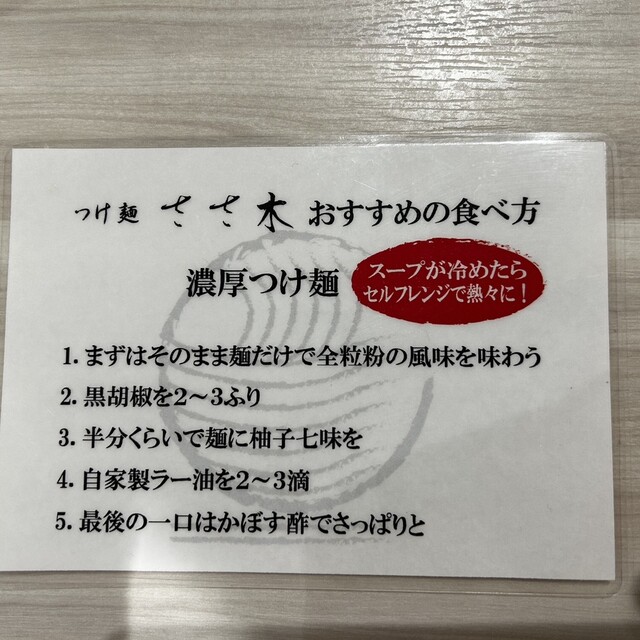 つけ麺 ささ木 おすすめの食べ方
濃厚つけ麺
スープが冷めたら
セルフレンジで熱々に！
1. まずはそのまま麺だけで全粒粉の風味を味わう
2. 黒胡椒を2〜3ふり
3. 半分くらいで麺に柚子七味を
4. 自家製ラー油を2〜3滴
5. 最後の一口はかぼす酢でさっぱりと